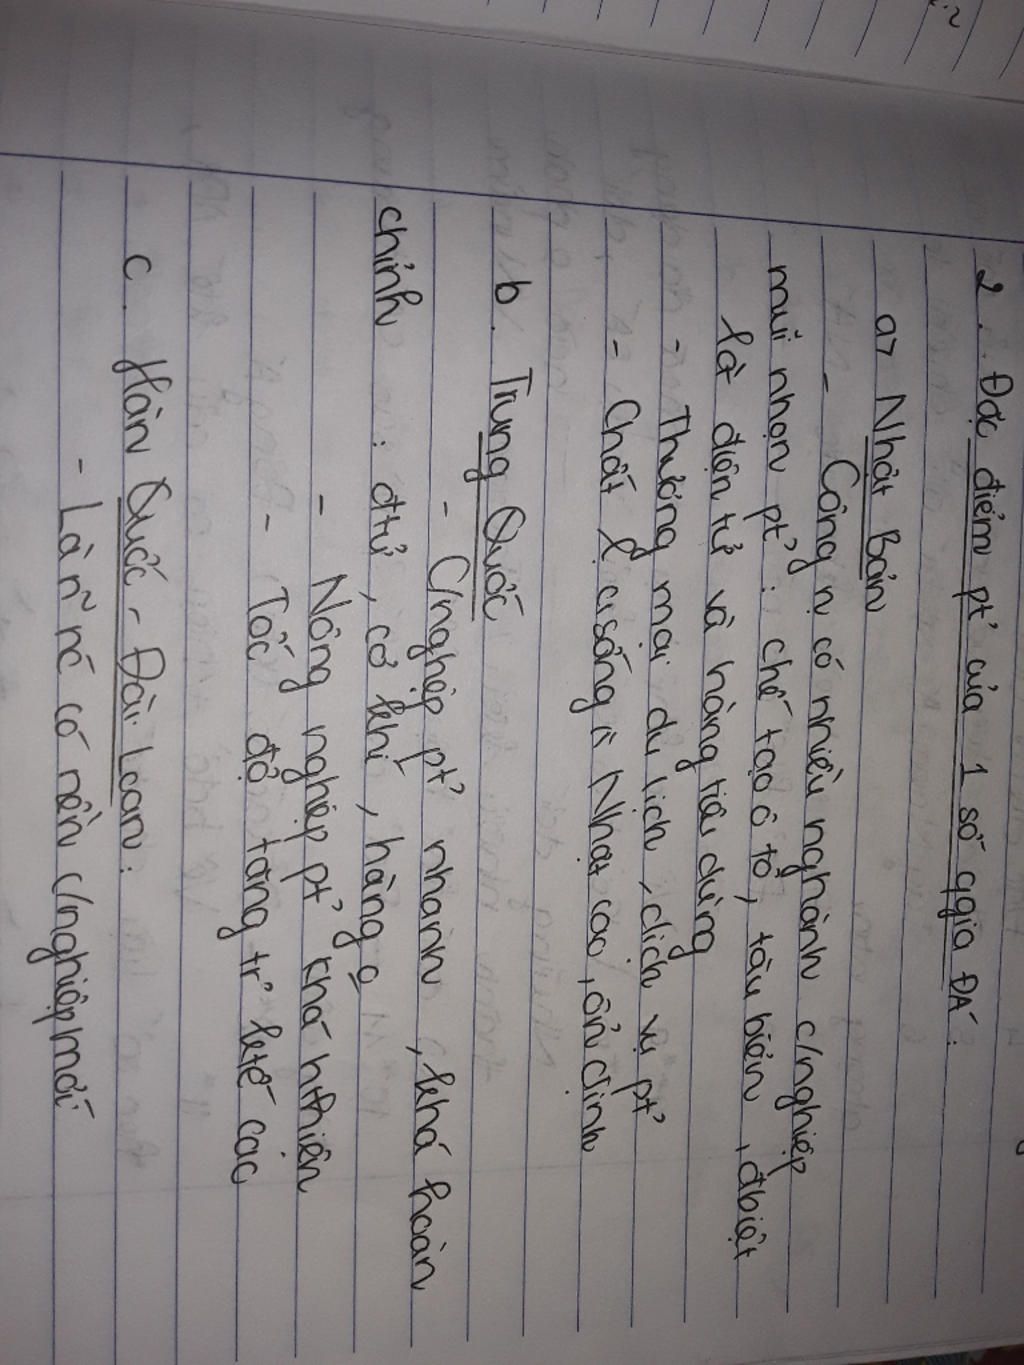 2. Đặc điểm pt' của 1 số qgia ĐÁ:
a> Nhật Bản
- Công n có nhiều nghành c/nghiệp
mũi nhọn pt': chế tạo ô tô, tàu biển, đbiệt
là điện tử và hàng tiêu dùng
- Thương mại du lịch, dịch vụ pt'
- Chất l c.sống Nhật cao, ổn định
b. Trung Quốc
- C/nghiệp pt' nhanh, khá hoàn
chỉnh: đtử, cơ khí, hàng
- Nông nghiệp pt' khá hthiên
- Tốc độ tăng tr' ktế cao
c. Hàn Quốc - Đài Loan:
- Là n có nền c/nghiệp mới